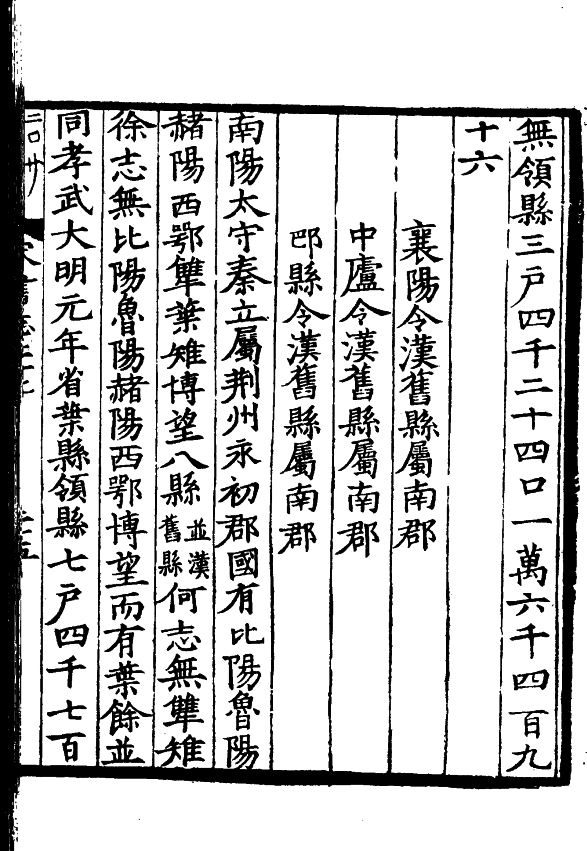 無領縣三戶四千二十四口一萬六千四百九
十六
襄陽令漢舊縣屬南郡
中廬令漢舊縣屬南郡
邔縣令漢舊縣屬南郡
南陽太守秦立屬荆州永初郡國有比陽魯陽
赭陽西鄂犨葉雉博望八縣並漢舊縣何志無犨雉
徐志無比陽魯陽赭陽西鄂博望而有葉餘並
同孝武大明元年省葉縣領縣七戶四千七百